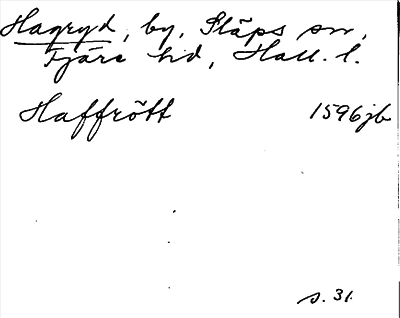 Hagryd, by, Släps sn,
Fjäre hd, Hall. l.
Haffrött 1596 jb
s. 31.